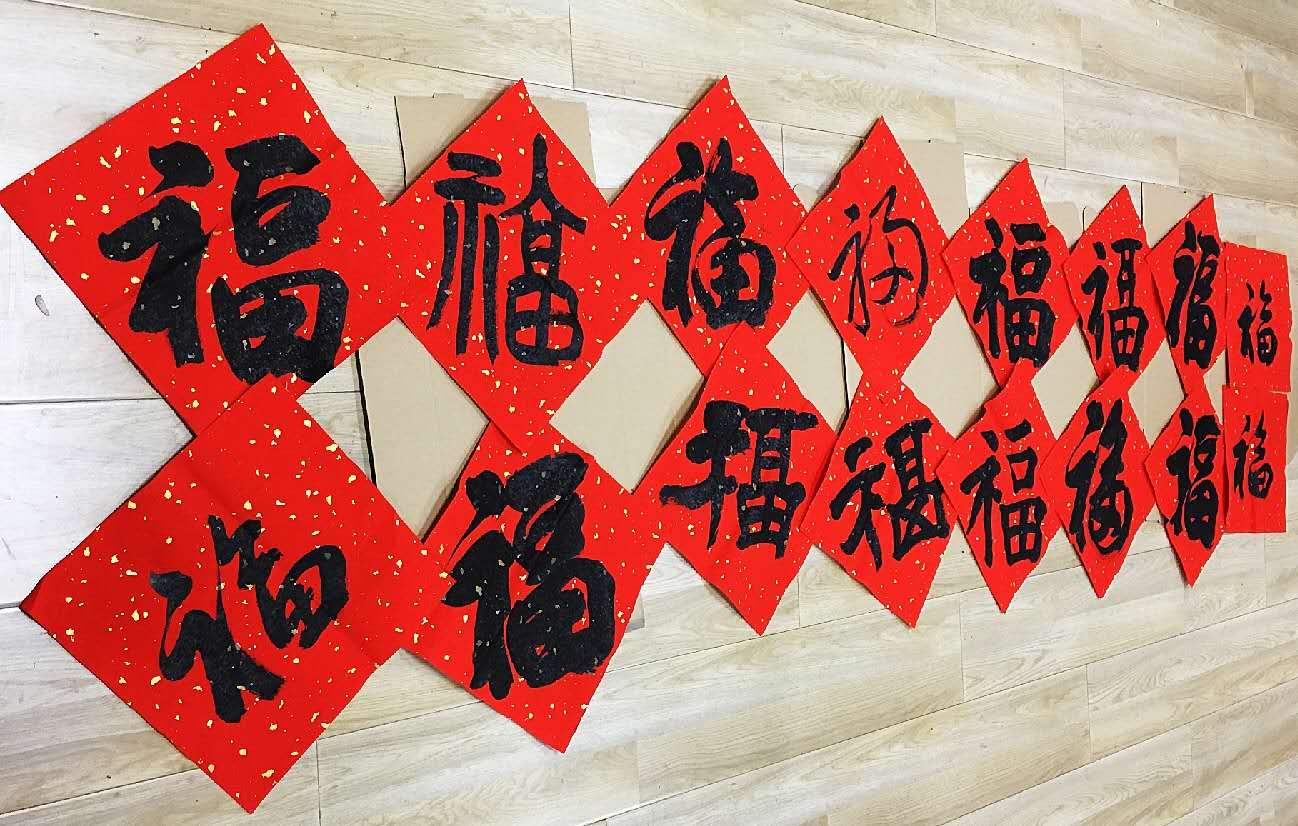 福 福 福 福 福 福 福 福
福 福 福 福 福 福 福 福